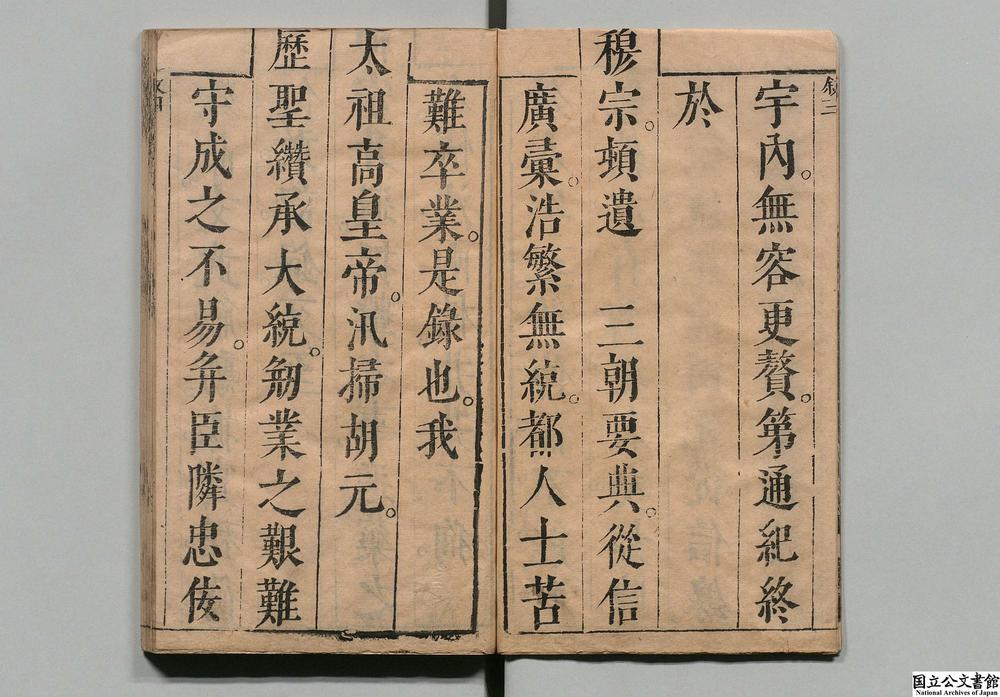 宇內。無容更贅。第通紀終
於
穆宗。頓遺　三朝要典。從信
廣彙。浩繁無統。都人士苦
難卒業。是錄也。我
太祖高皇帝。汛掃胡元。
歷聖纘承大統。剏業之艱難
守成之不易。弁臣隣忠佞
国立公文書館
National Archives of Japan